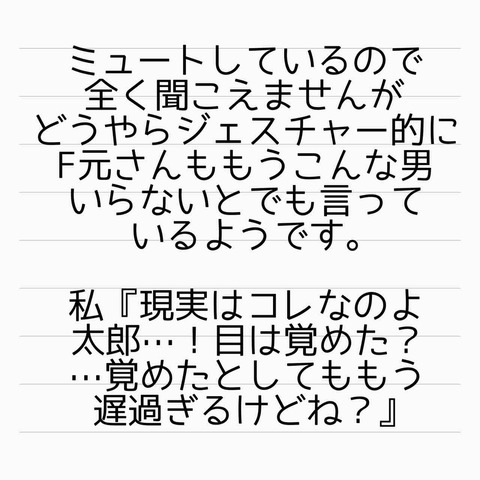 ミュートしているので
全く聞こえませんが
どうやらジェスチャー的に
F元さんももうこんな男
いらないとでも言って
いるようです。
私『現実はコレなのよ
太郎…！目は覚めた？
…覚めたとしてももう
遅過ぎるけどね？』